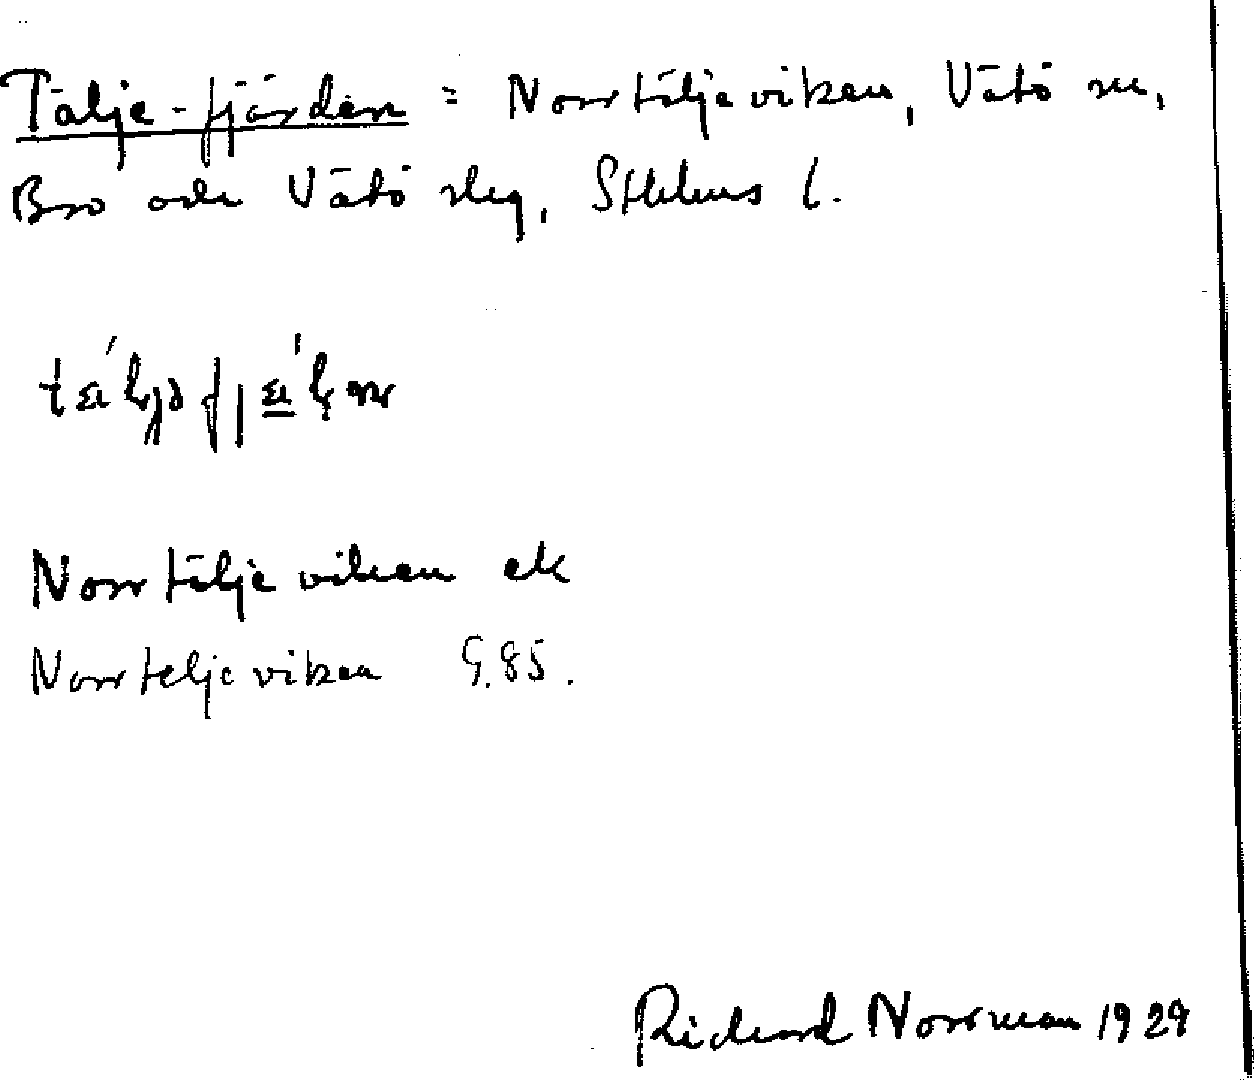 Tälje-fjärden = Norrtäljeviken, Vätö sn,
Bro och Vätö slg, Sthlms l.
Norrtäljeviken ek
Norrteljeviken G.85.
Richard Norrman 1929